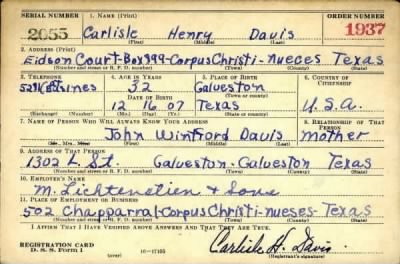 SERIAL NUMBER 1. NAME (Print) ORDER NUMBER
2055 Carlisle Henry Davis 1937
(First) (Middle) (Last)
2. ADDRESS (Print)
Eidson Court-Box999-Corpus Christi-nueces Texas
(Number and street or R. F. D. number) (Town) (County) (State)
3. TELEPHONE 4. AGE IN YEARS 5. PLACE OF BIRTH 6. COUNTRY OF CITIZENSHIP
32 Galveston
DATE OF BIRTH (Town or county)
12 16 07 Texas U.S.A.
(Exchange) (Number) (Mo.) (Day) (Yr.) (State or country)
7. NAME OF PERSON WHO WILL ALWAYS KNOW YOUR ADDRESS 8. RELATIONSHIP OF THAT PERSON
John Winford Davis mother
(Mr., Mrs., Miss) (First) (Middle) (Last)
9. ADDRESS OF THAT PERSON
1302 L St. Galveston-Galveston Texas
(Number and street or R. F. D. number) (Town) (County) (State)
10. EMPLOYER'S NAME
M. Lichtenstien & Sons
11. PLACE OF EMPLOYMENT OR BUSINESS
502 Chapparral-Corpus Christi-nueses-Texas
(Number and street or R. F. D. number) (Town) (County) (State)
I AFFIRM THAT I HAVE VERIFIED ABOVE ANSWERS AND THAT THEY ARE TRUE.
REGISTRATION CARD
D. S. S. Form 1 (over) 16-17105 Carlisle H. Davis
(Registrant's signature)